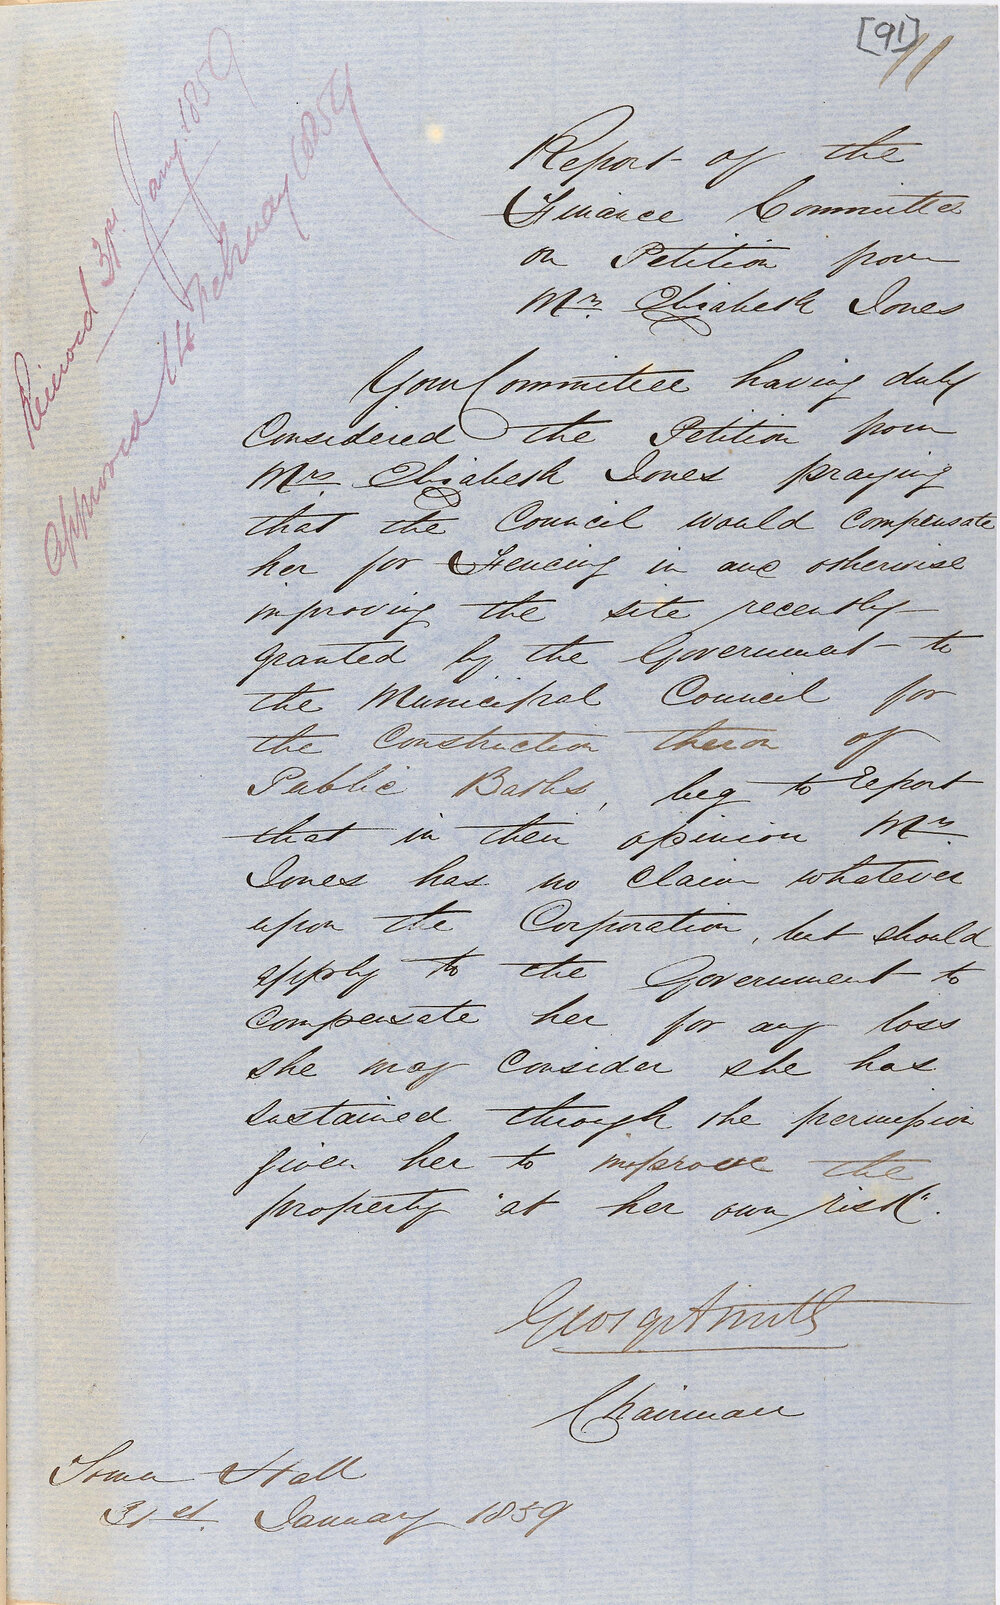 [91]
11
Received 31st Jany. 1859
Approved 14 February 1859
Report of the
Finance Committee
on Petition from
Mrs. Elizabeth Jones
Your Committee having duly
Considered the Petition from
Mrs Elizabeth Jones praying
that the Council would compensate
her for Fencing in and otherwise
improving the site recently
granted by the Government to
the Municipal Council for
the Construction theron of
Public Baths, beg to report
that in their opinion Mrs
Jones has no claim whatever
upon the Corporation, but should
apply to the Government to
compensate her for any loss
she may consider she has
sustained through the permission
given her to improve the
property "at her own risk".
George Smith
Chairman
Town Hall
31st. January 1859